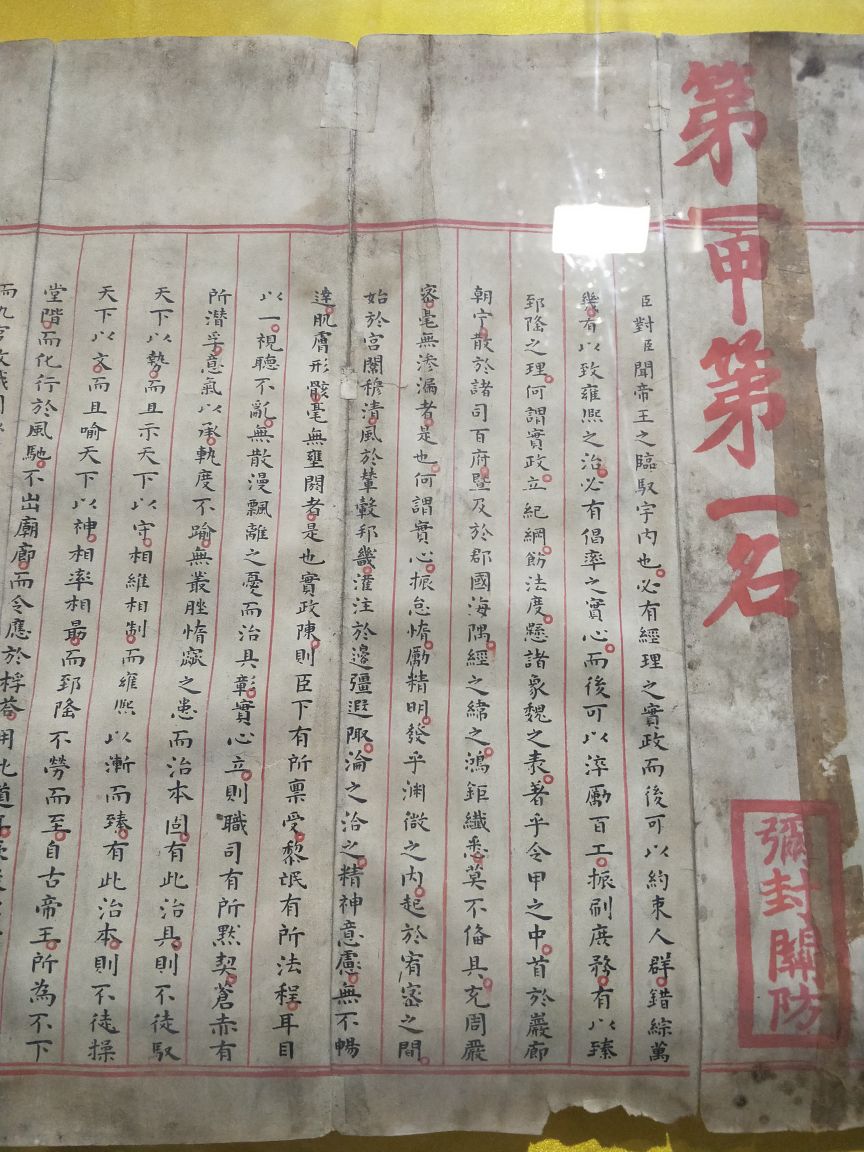 第一甲第一名
彌封關防
臣對臣聞帝王之臨馭宇内也必有經理之實政而後可以約束人群錯綜萬
幾有以致雍熙之治必有倡率之實心而後可以淬勵百工振刷庶務有以臻
郅隆之理何謂實政立紀綱飭法度懸諸象魏之表著乎令甲之中首於巖廊
朝宁散於諸司百府暨及於郡國海隅經之緯之鴻鉅纖悉莫不俻具充周嚴
密毫無滲漏者是也何謂實心振怠惰勵精明發乎淵微之内起於宥密之間
始於宫闈穆清風於輦轂邦畿灌注於邊疆遐陬淪之洽之精神意慮無不暢
達肌膚形骸毫無壅閼者是也實政陳則臣下有所禀受黎氓有所法程耳目
以一視聽不亂無散漫飄離之憂而治具彰實心立則職司有所默契蒼赤有
所潛孚意氣以承軌度不踰無叢脞惰窳之患而治本固有此治具則不徒馭
天下以勢而且示天下以守相維相制而雍熙以漸而臻有此治本則不徒操
天下以文而且喻天下以神相率相勗而郅隆不勞而至自古帝王所為不下
堂階而化行於風馳不出廟廊而令應於桴荅用此道耳